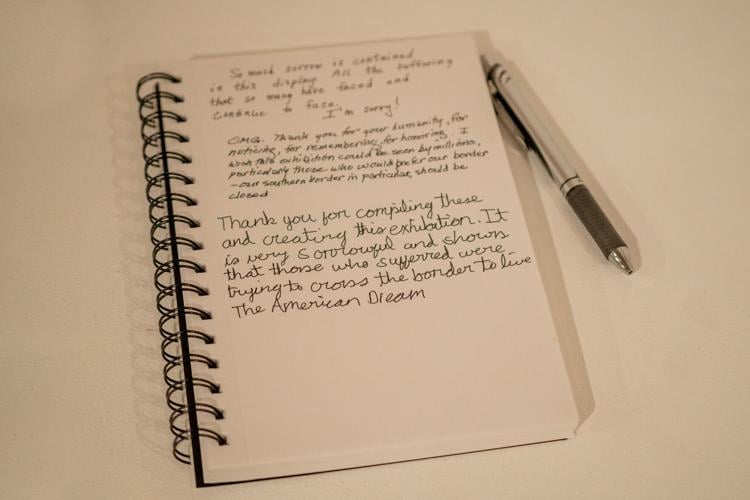 So much sorrow is contained
in this display. All the suffering
that so many have faced and
continue to face.
I'm sorry!
OMG. Thank you for your humanity, for
noticing, for remembering, for honoring. I
wish this exhibition could be seen by millions,
particularly those who would prefer our border
- our southern border in particular, should be
closed
Thank you for compiling these
and creating this exhibation. It
is very sorrowful and shows
that those who sufferred were
trying to cross the border to live
The American Dream